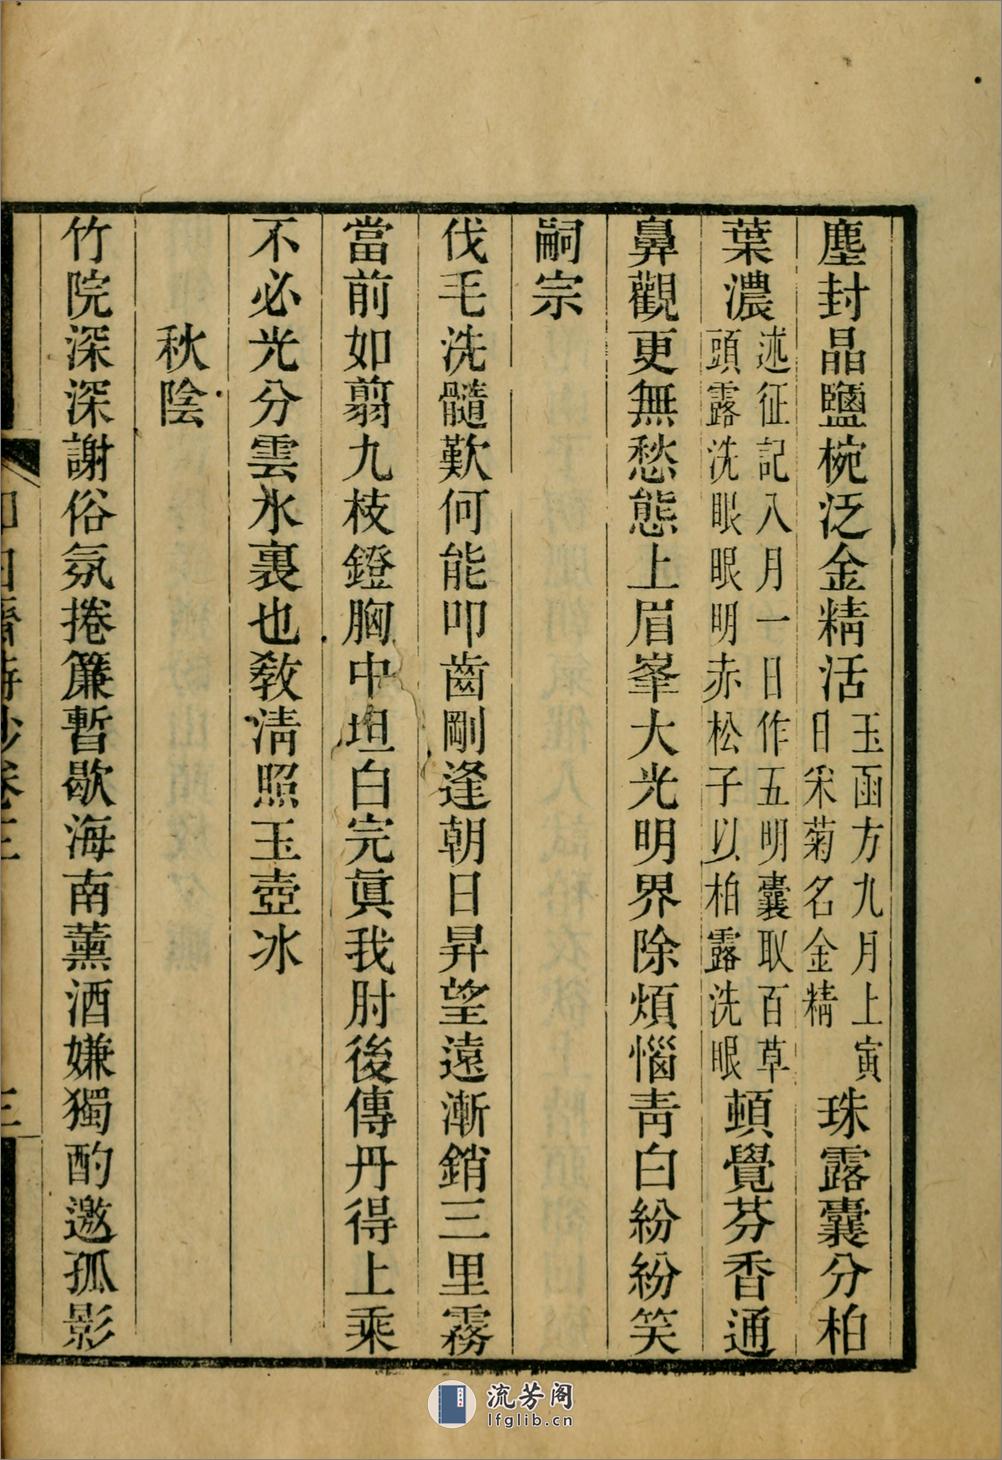 塵封晶鹽椀泛金精活玉函方九月上寅日采菊名金精珠露囊分柏
葉濃述征記八月一日作五明囊取百草頭露洗眼眼明赤松子以柏露洗眼頓覺芬香通
鼻觀更無愁態上眉峯大光明界除煩惱青白紛紛笑
嗣宗
伐毛洗髓歎何能叩齒剛逢朝日昇望遠漸銷三里霧
當前如翦九枝鐙胸中坦白完眞我肘後傳丹得上乘
不必光分雲水裏也敎淸照玉壺冰
秋陰
竹院深深謝俗氛捲簾暫歇海南薰酒嫌獨酌邀孤影
詩鈔卷三
三
流芳阁
lfglib.cn